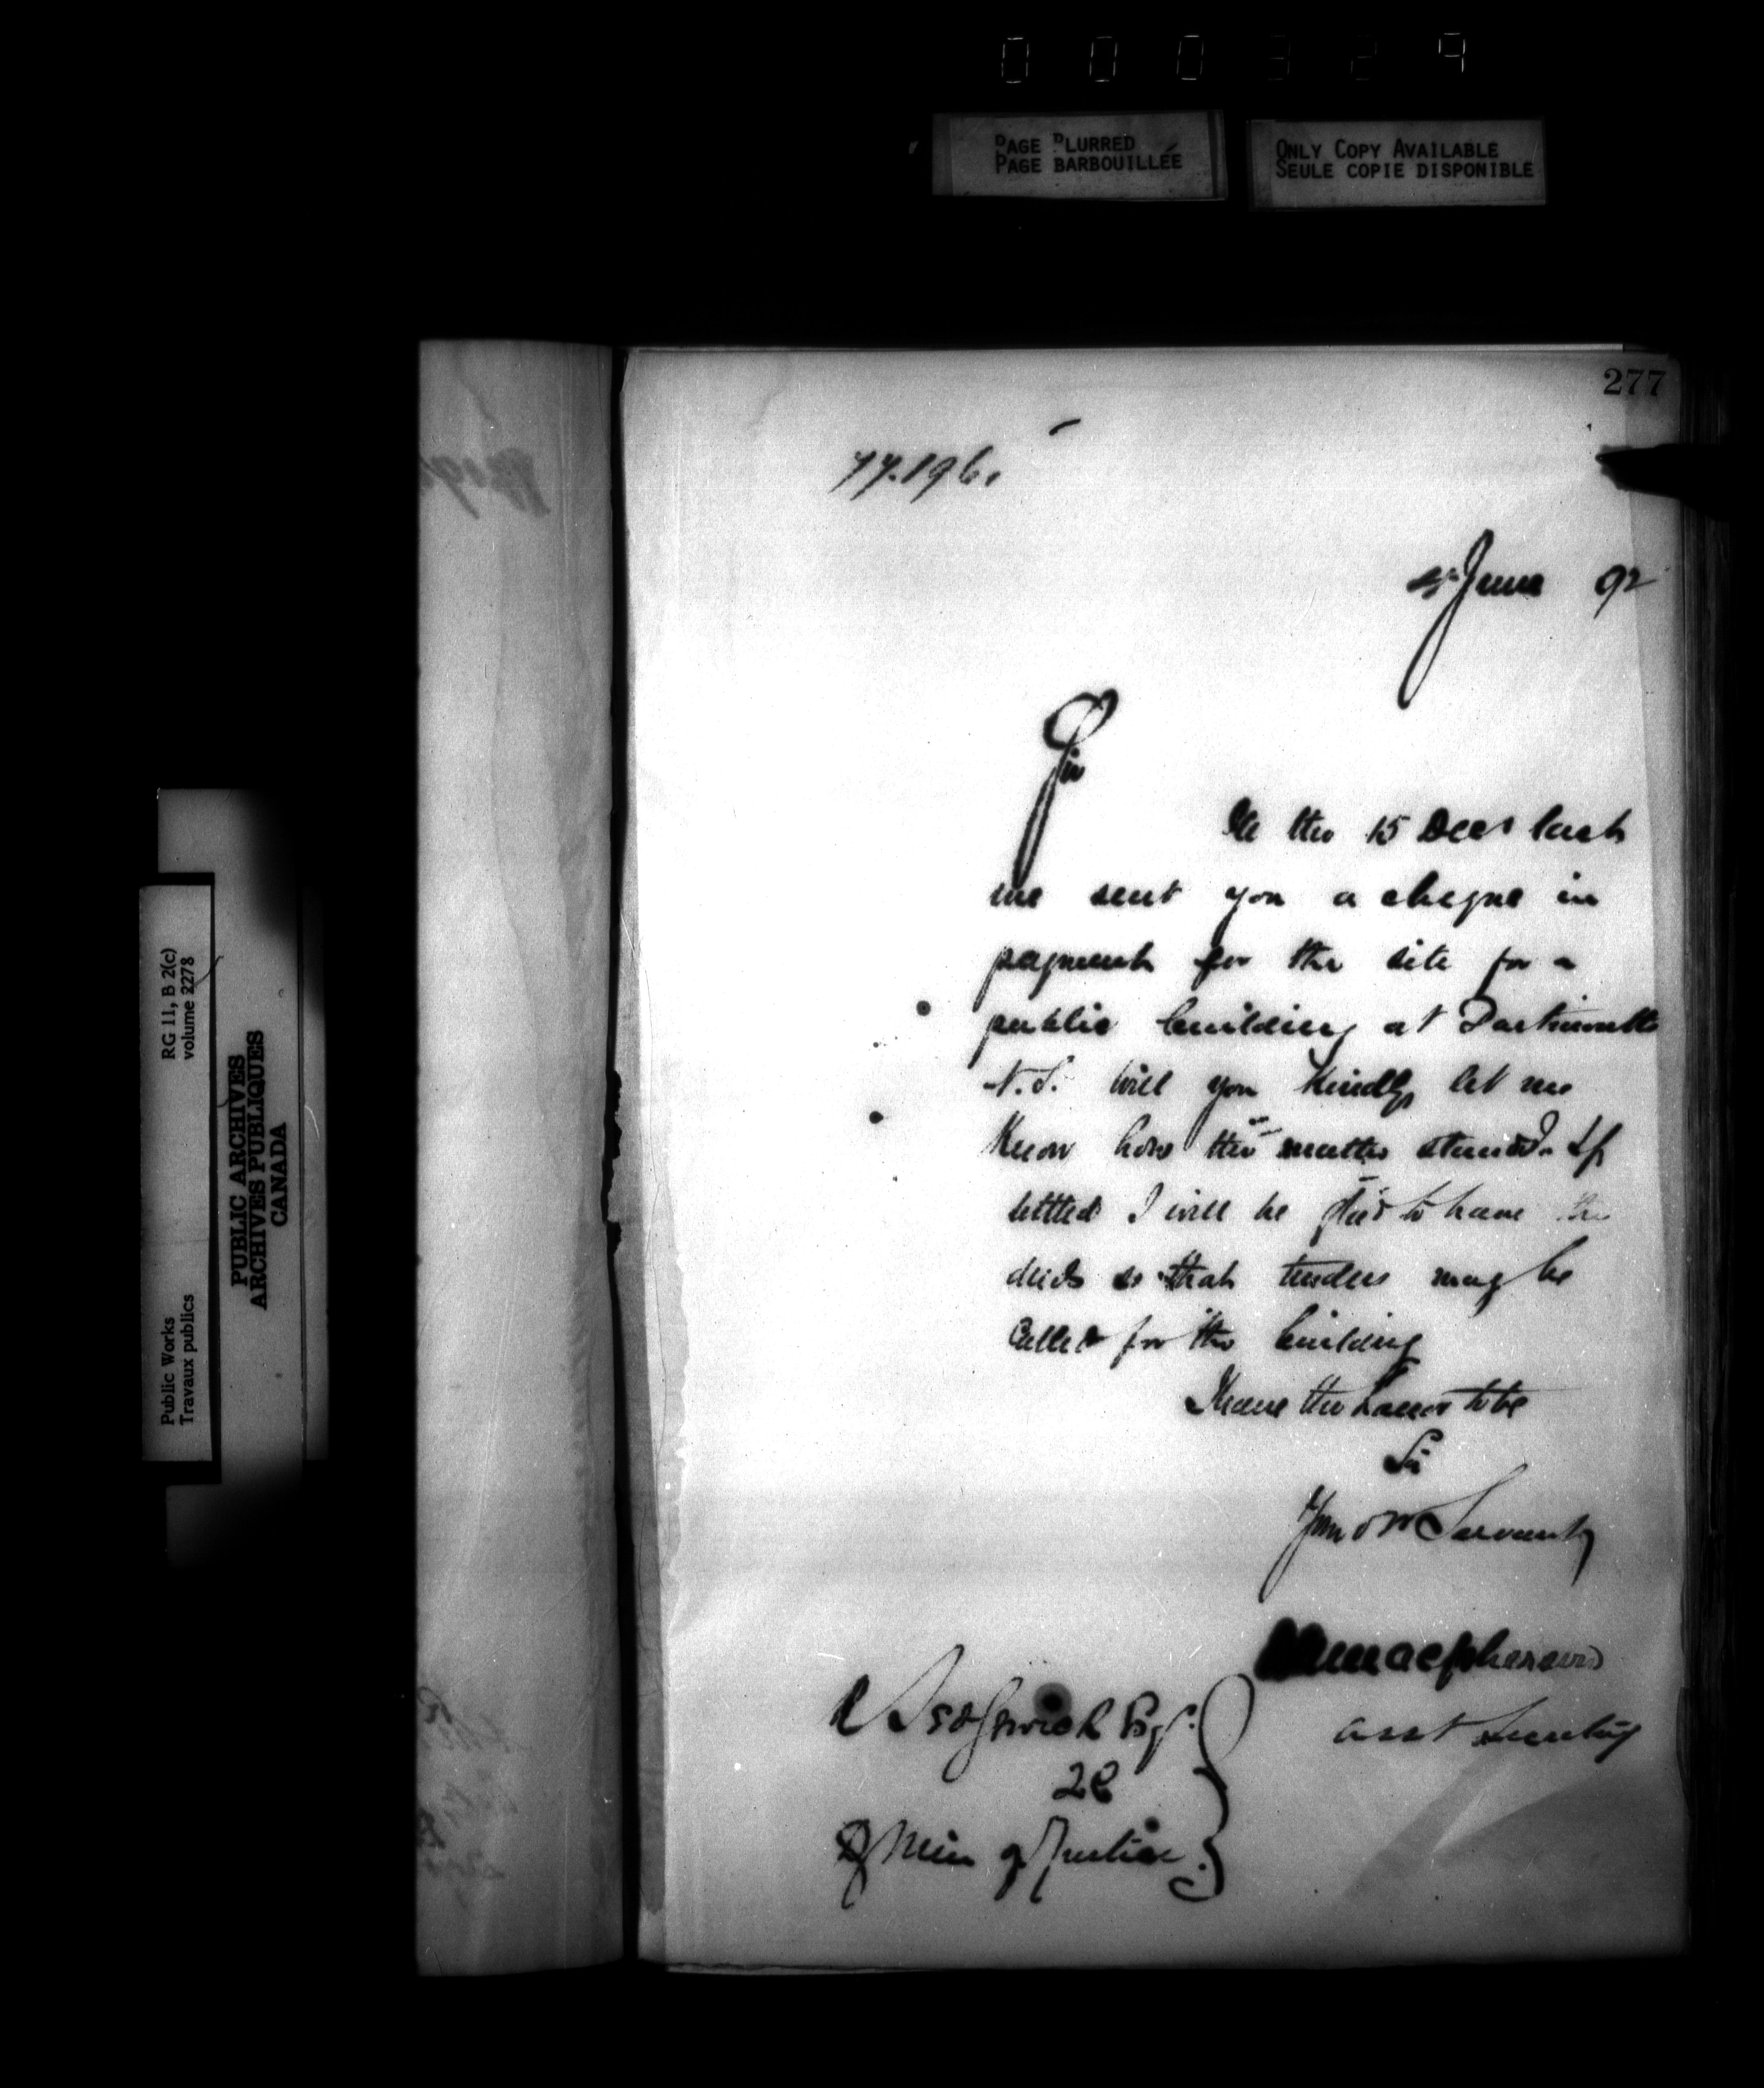 000329
PAGE BLURRED
PAGE BARBOUILLÉE
ONLY COPY AVAILABLE
SEULE COPIE DISPONIBLE
277
77.196.
June 92
Sir
the 15 Decr last
we sent you a cheque in
payment for the site for a
public building at Dartmouth
N.S. Will you kindly let me
Know how the matter stands. If
settled I will be glad to have the
deeds so that tenders may be
Called for the building
I have the honor to be
Sir
Your Servant
Macpherson
Asst Secretary
R Sedgewick Esqr.
2C
D Min of Justice.
RG 11, B 2(c)
volume 2278
Public Works
Travaux publics
PUBLIC ARCHIVES
ARCHIVES PUBLIQUES
CANADA